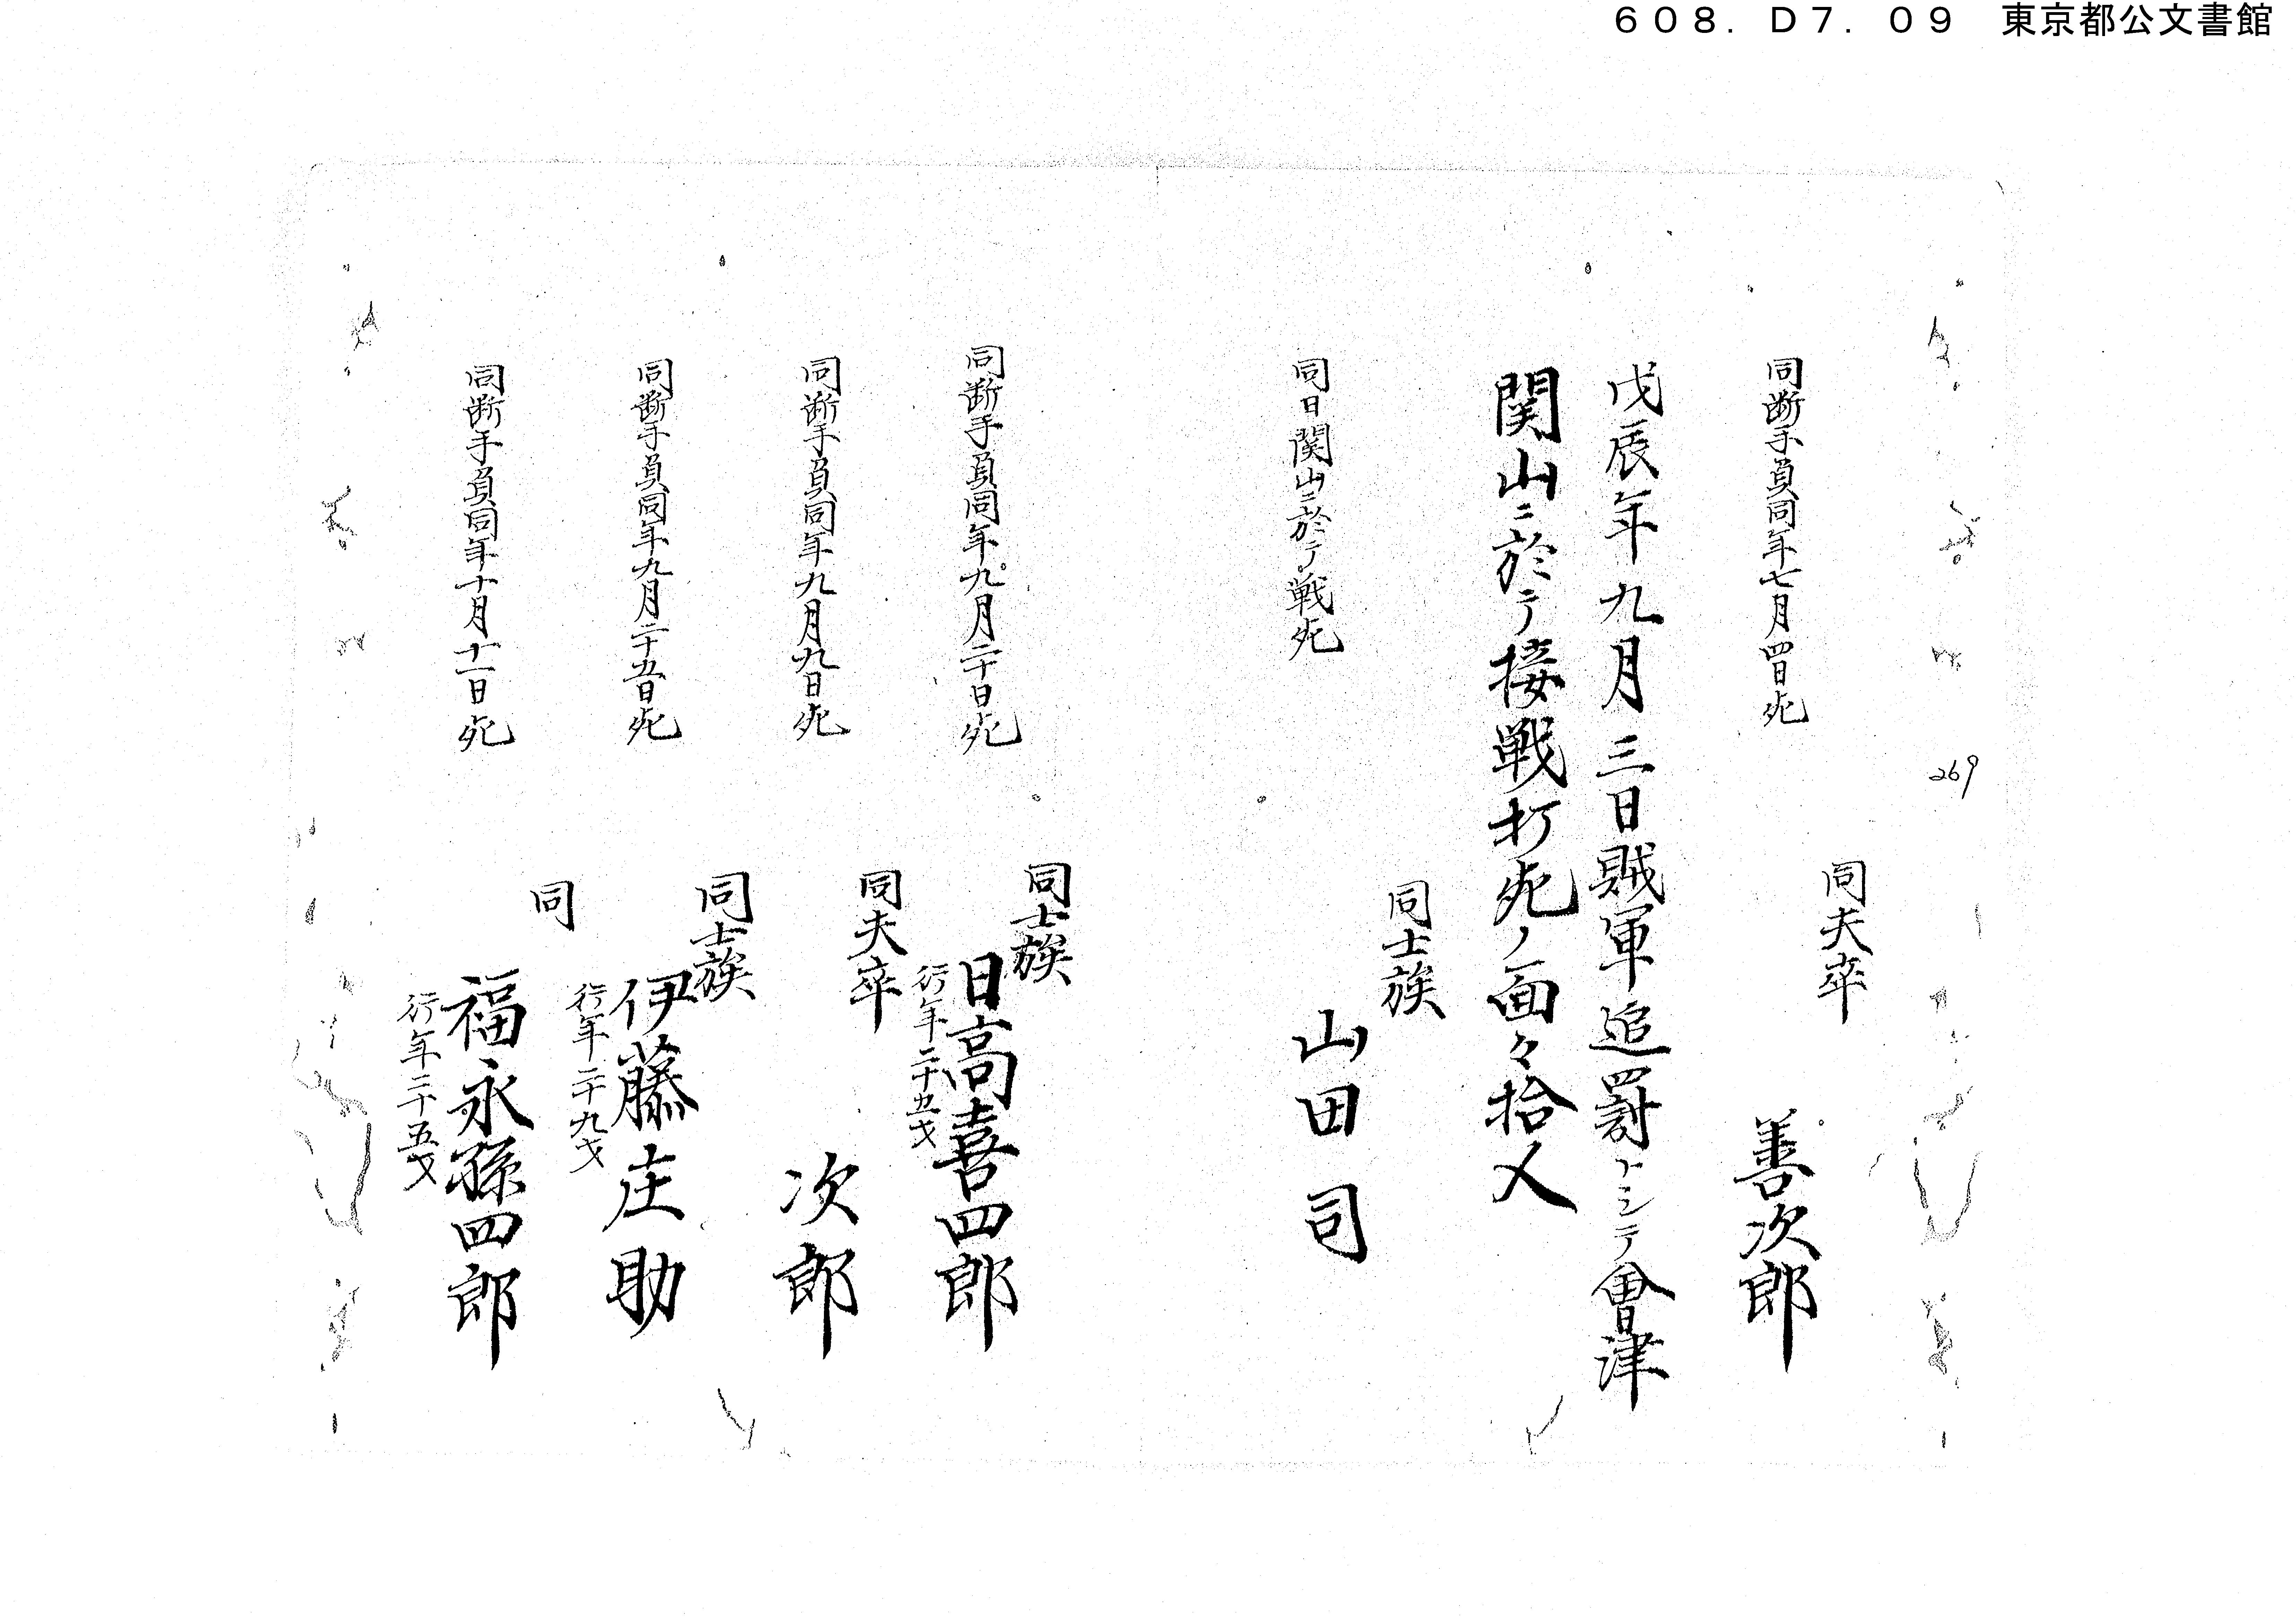 608. D7. 09 東京都公文書館
269
同夫卒
同断手負同年七月四日死
善次郎
戊辰年九月三日賊軍追罰トシテ會津
関山ニ於テ接戦打死ノ面々拾人
同士族
同日関山ニ於テ戦死
山田司
同士族
同断手負同年九月二十日死
日高喜四郎
行年二十五才
同夫卒
同断手負同年九月九日死
次郎
同士族
同断手負同年九月二十五日死
伊藤庄助
行年二十九才
同
同断手負同年十月十一日死
福永孫四郎
行年二十五才